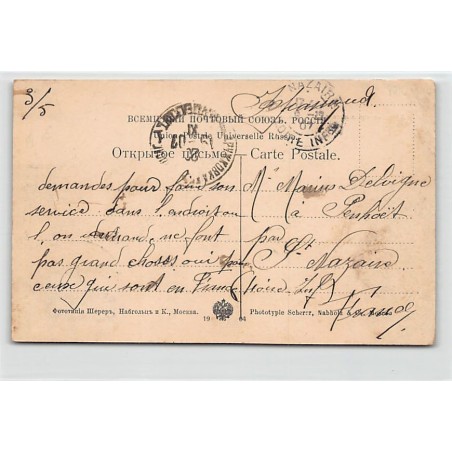 3/5
ВСЕМІРНЫЙ ПОЧТОВЫЙ СОЮЗЪ. РОССІЯ
Union Postale Universelle Russie
Открытое письмо. Carte Postale.
demandes pour faire son
service dans l'endroit ou
l'on demande ne font
pas grand choses oui pour
ceux qui sont en France
Mr Marius Delvigne
à Penhoët
par St
Nazaire
Loire Inf
France
Фототипія Шереръ, Набгольцъ и К., Москва.
19 04
Phototypie Scherer, Nabholz
NAZAIRE
LOIRE INFRE